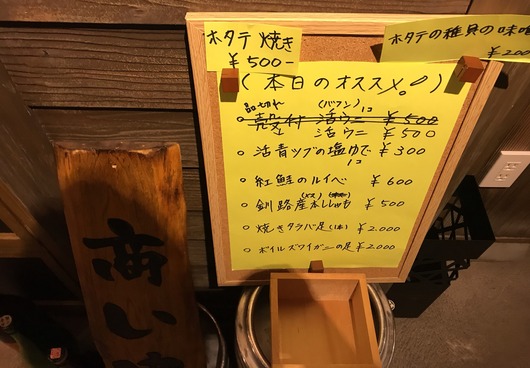 ホタテ焼き
¥500-
ホタテの稚貝の味噌
¥200
(本日のオススメ。)
品切れ (バフン) 1コ
殻付 活ウニ ¥500
活ウニ ¥500
活青ツブの塩ゆで ¥300
1コ
紅鮭のルイベ ¥600
(メス)
釧路産本ししゃも ¥500
焼きタラバ足(1本) ¥2.000
ボイルズワイガニの足 ¥2.000
商い